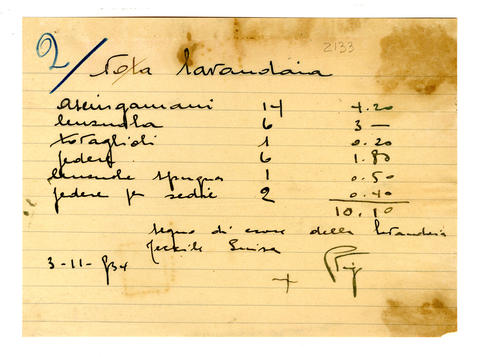 2/
2133
Nota lavandaia
asciugamani 14 4.20
lenzuola 6 3 —
tovaglioli 1 0.20
federe 6 1.80
lenzuolo spugna 1 0.50
federe per sedie 2 0.40
10.10
segno di croce della lavandaia
Luisa
3-11-934 +